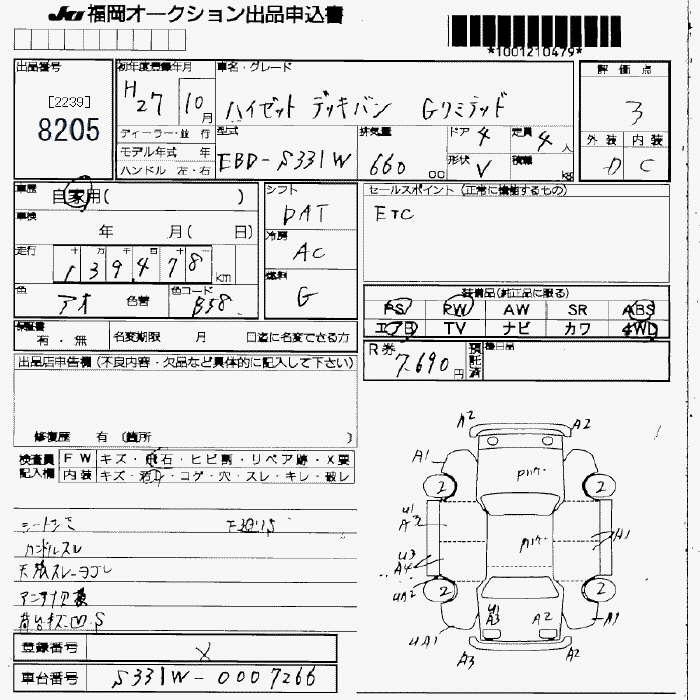 JU 福岡オークション出品申込書
*1001210479*
出品番号
[2239]
8205
初年度登録年月
H27 10月
ディーラー・並行
モデル年式 年
ハンドル 左・右
車名・グレード
ハイゼット デッキバン Gリミテッド
型式
EBD-S331W
排気量
660 cc
ドア 4
形状 V
定員 4人
積載 kg
評価点
3
外装 内装
D C
車歴
自家用( )
車検
年 月( 日)
走行
十 万 千 百 十
139,478 km
色
アオ 色替
色コード
B58
シフト
DAT
冷房
AC
燃料
G
セールスポイント(正常に機能するもの)
ETC
装備品(純正品に限る)
PS PW AW SR ABS
エアB TV ナビ カワ 4WD
保証書
有・無
名変期限 月 日迄に名変できる方
R券
7,690円
預託済
後日品
出品店申告欄(不良内容・欠品など具体的に記入して下さい)
修復歴 有(箇所 )
検査員記入欄
FW キズ・飛石・ヒビ割・リペア跡・X要
内装 キズ・汚レ・コゲ・穴・スレ・キレ・破レ
ハンドルスレ
登録番号
X
車台番号
S331W-0007266
A2
A2
A1
2
2
U1
A3
A1
U3
A4
UA2
2
2
UA1
U1
A3
A2
A1
A3
A2